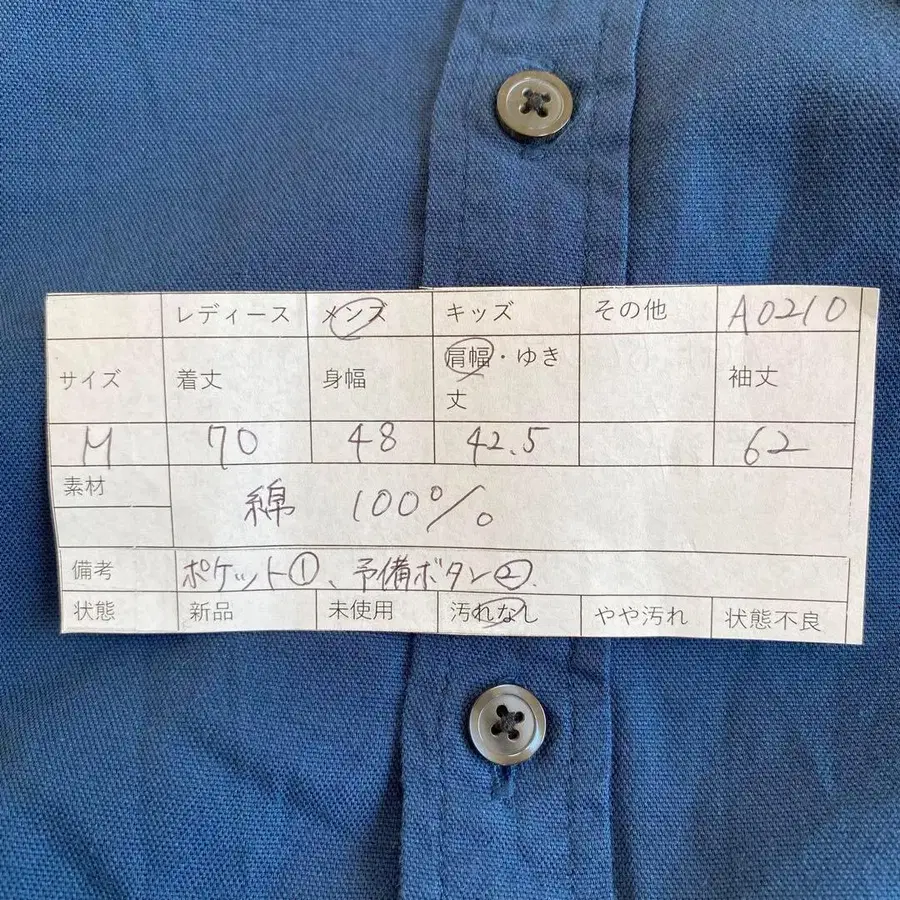 レディース メンズ キッズ その他 A0210
サイズ 着丈 身幅 肩幅・ゆき丈 袖丈
M 70 48 42.5 62
素材 綿 100%
備考 ポケット①、予備ボタン②.
状態 新品 未使用 汚れなし やや汚れ 状態不良